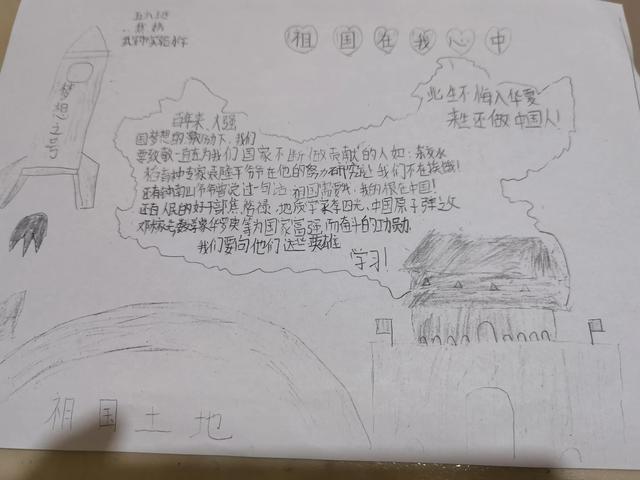 祖国在我心中
梦想之号
此生不悔入华夏
来生还做中国人!
百年来,大强
国梦想的激励下,我们
要致敬一直在为我们国家不断做贡献的人如:杂交水
稻育种专家袁隆平爷爷在他的努力研究是我们不在挨饿!
还有钟南山爷爷曾说过一句话:祖国需要我,我的根在中国!
还有人民的好干部焦裕禄,地质学家李四光、中国原子弹之父
邓稼先数学家华罗庚等为国家富强而奋斗的功勋,
我们要向他们这些英雄
学习!
祖国土地